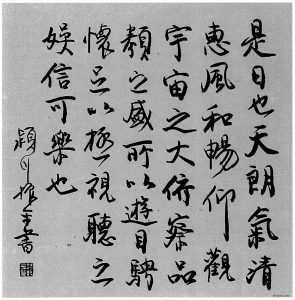 是日也天朗氣清
惠風和暢仰觀
宇宙之大俯察品
類之盛所以遊目騁
懷足以極視聽之
娛信可樂也